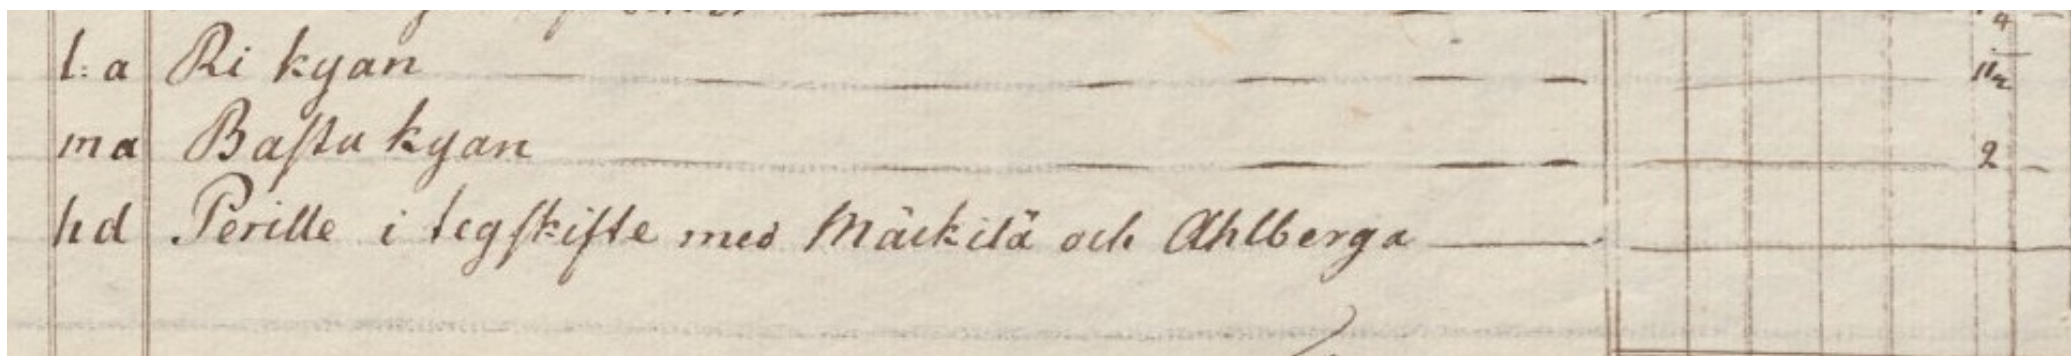 l: a Ri kyan 1 1/2
m a Bastu kyan 2
h d Perille i tegskifte med Mäckilä och Ahlberga